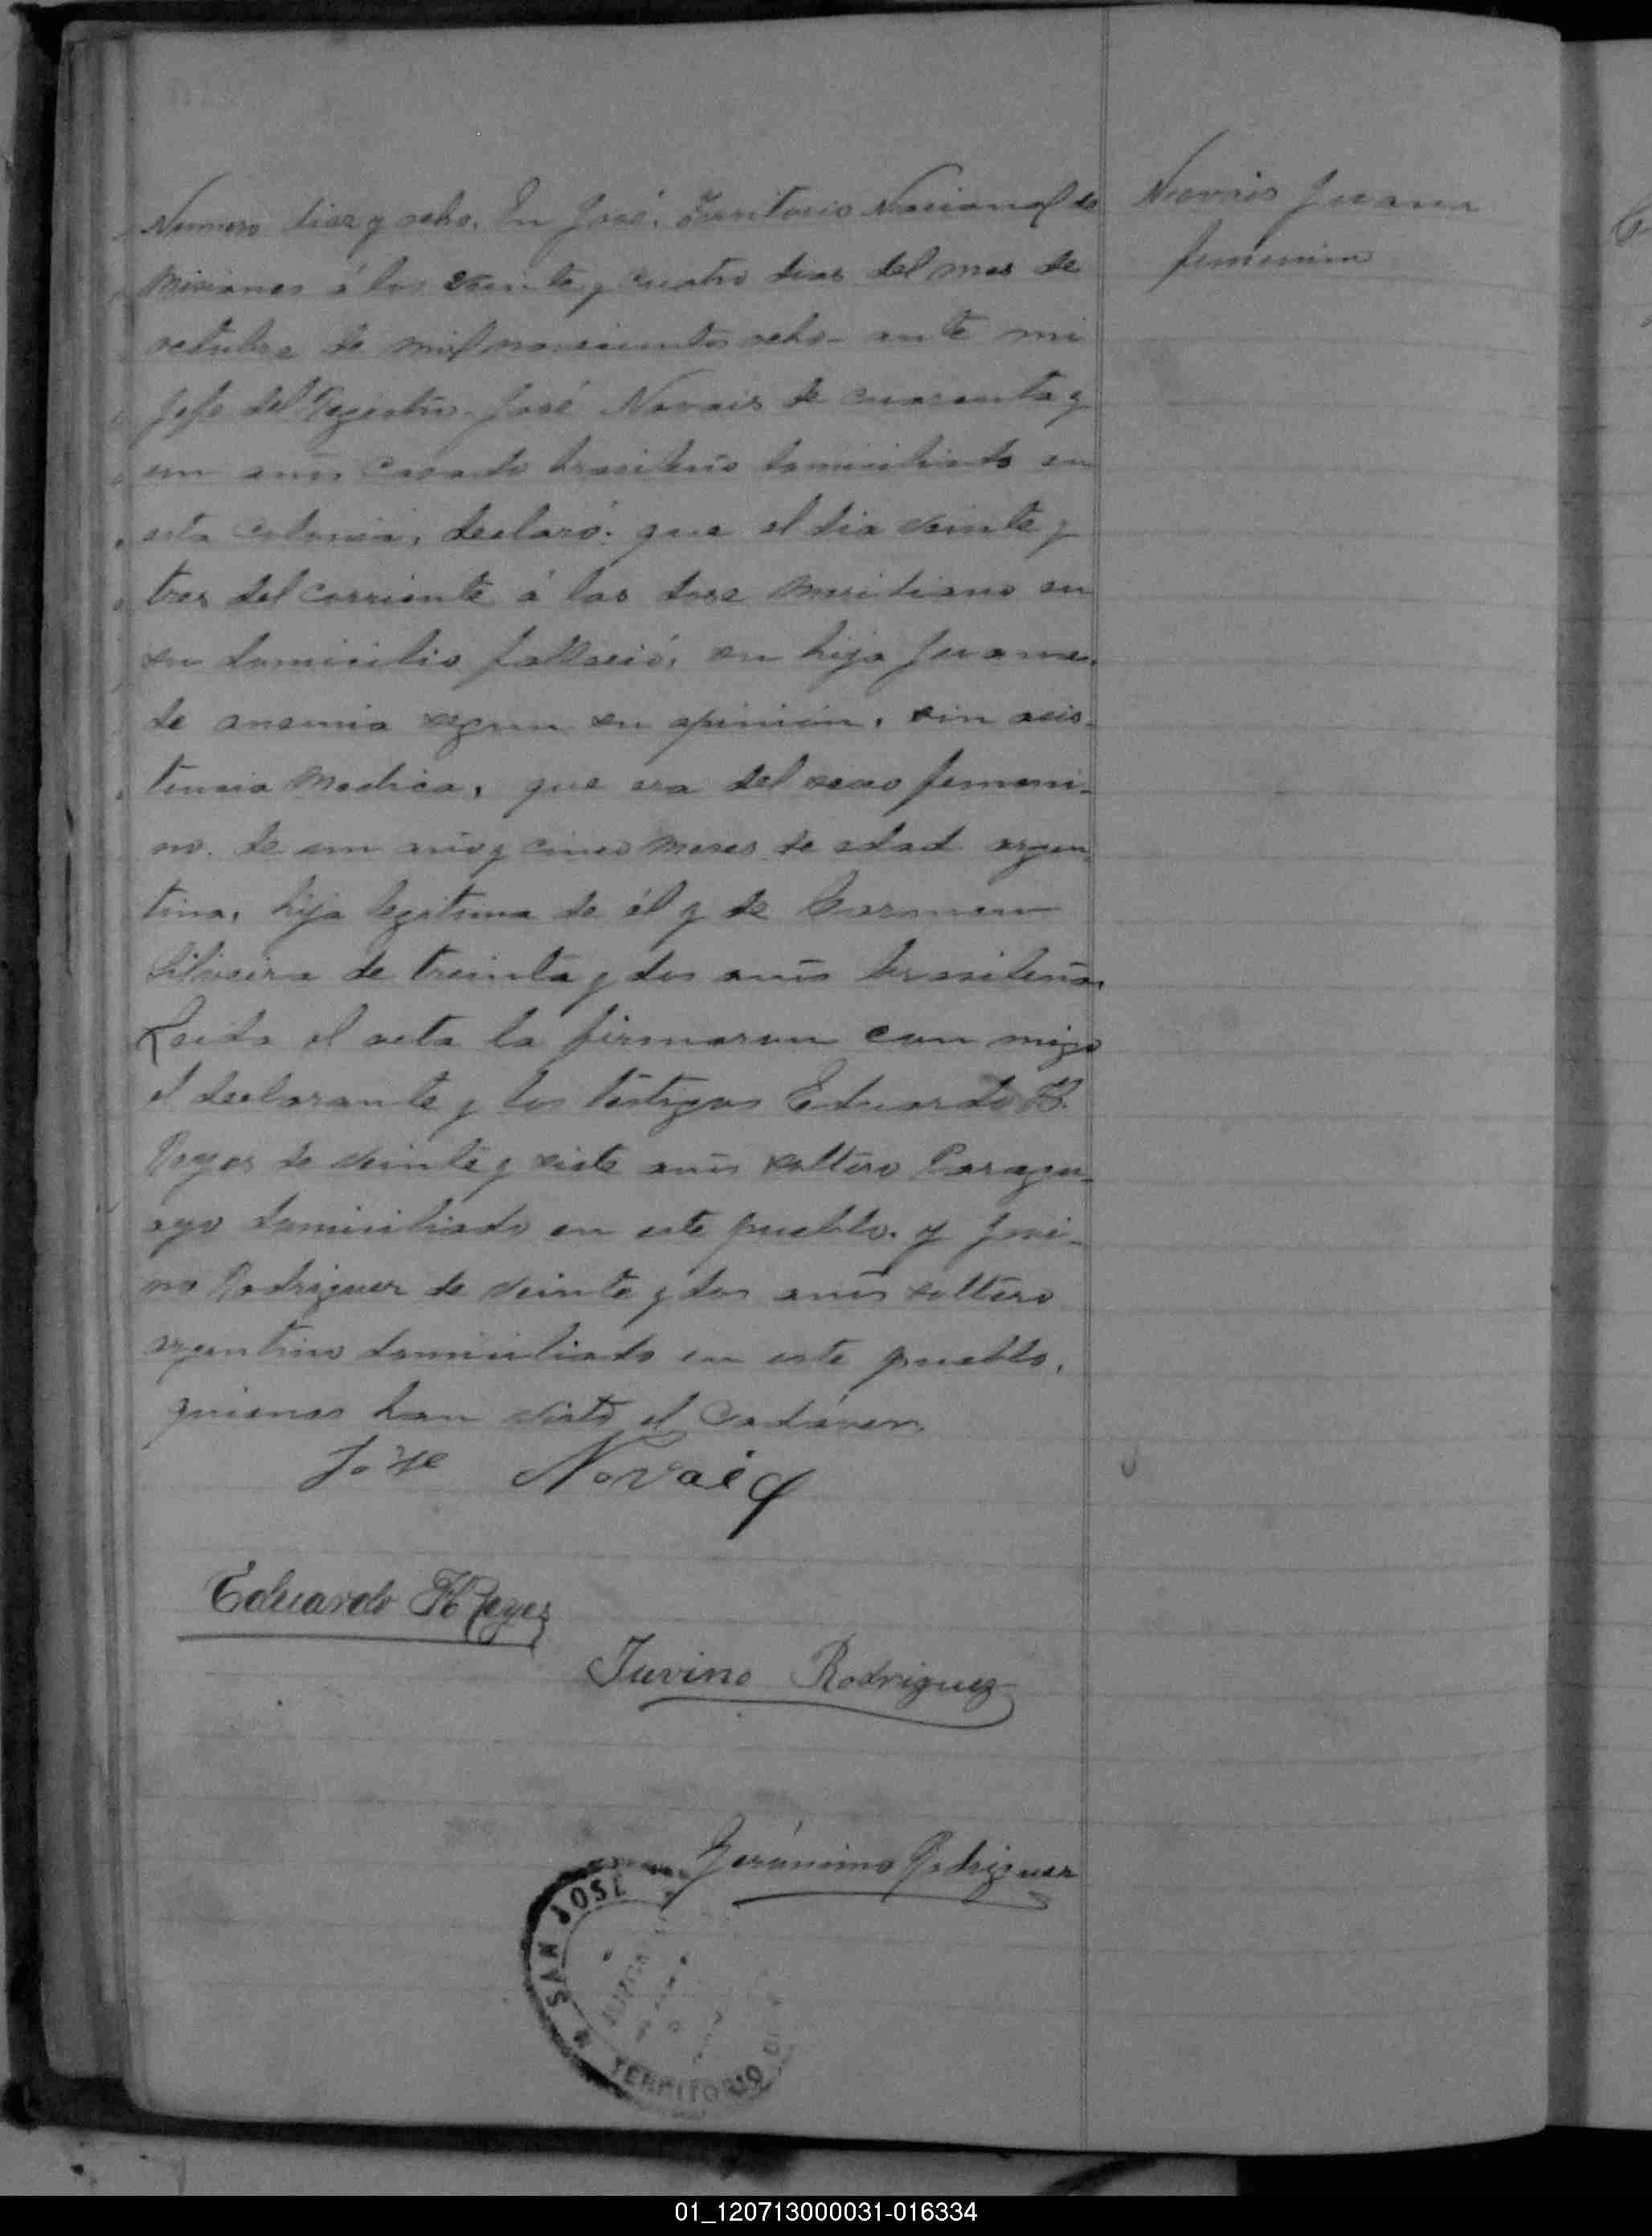 Numero diez y ocho. En José. Territorio Nacional de
Misiones á los veinte y cuatro dias del mes de
octubre de mil novecientos ocho - ante mi
Jefe del Registro. José Novais de cuarenta y
un años casado brasilero domiciliado en
esta Colonia, declaró: que el dia veinte y
tres del corriente á las doce meridiano en
su domicilio falleció, su hija Juana.
de anemia segun su opinion, sin asis-
tencia medica, que era del sexo femeni-
no. de un año y cinco meses de edad argen-
tina, hija legitima de él y de
Silveira de treinta y dos años brasilera
Leida el acta la firmaron con migo
el declarante y los testigos Eduardo H.
Reyes de veinte y siete años soltero Paragu-
ayo domiciliado en este pueblo. y Juvi-
no Rodriguez de veinte y dos años soltero
argentino domiciliado en este pueblo.
quienes han visto el Cadáver.
Jose Novais
Eduardo H Reyes
Juvino Rodriguez
Gerónimo Rodriguez
SAN JOSÉ
JUZGA
TERRITORIO DE
Novais Juana
femenino
01_120713000031-016334